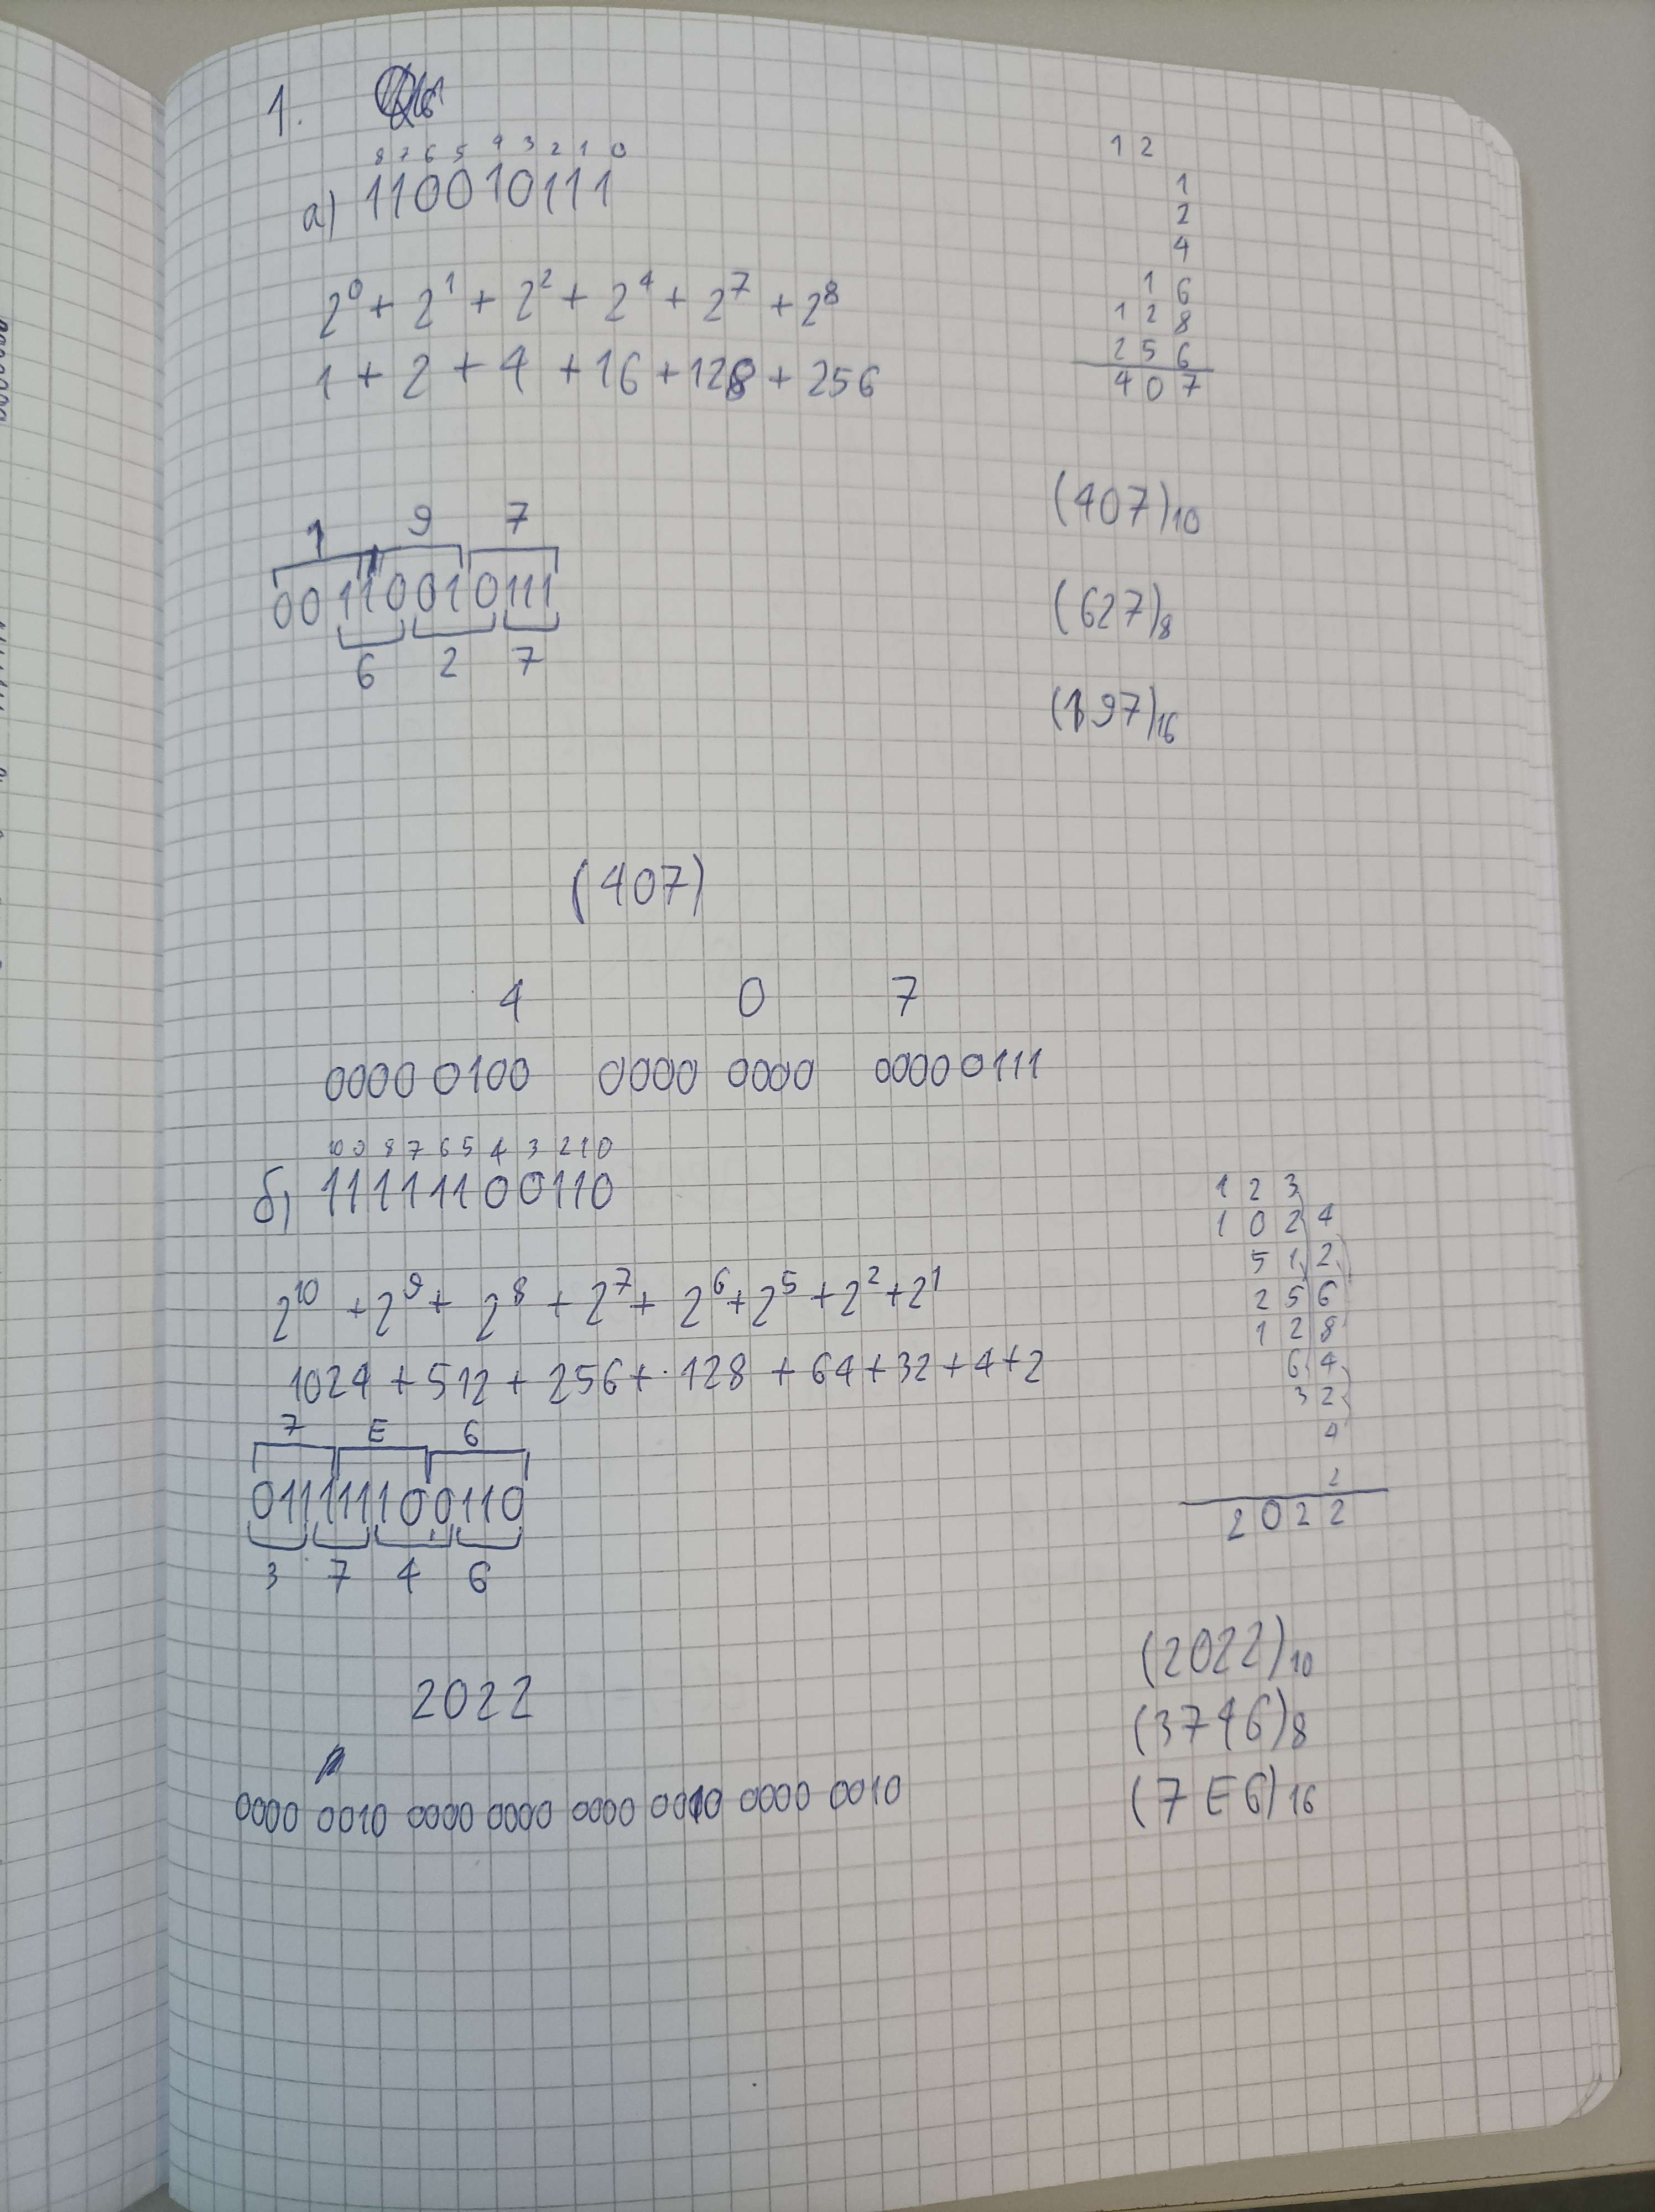 1.
8 7 6 5 4 3 2 1 0
а) 110010111
2⁰ + 2¹ + 2² + 2⁴ + 2⁷ + 2⁸
1 + 2 + 4 + 16 + 128 + 256
1 2
1
2
4
1 6
1 2 8
2 5 6
4 0 7
1 9 7
00110010111
6 2 7
(407)₁₀
(627)₈
(197)₁₆
(407)
4 0 7
0000 0100 0000 0000 0000 0111
10 9 8 7 6 5 4 3 2 1 0
б) 11111100110
2¹⁰ + 2⁹ + 2⁸ + 2⁷ + 2⁶ + 2⁵ + 2² + 2¹
1024 + 512 + 256 + 128 + 64 + 32 + 4 + 2
1 2 3
1 0 2 4
5 1 2
2 5 6
1 2 8
6 4
3 2
4
2
2 0 2 2
7 E 6
011111100110
3 7 4 6
2022
0000 0010 0000 0000 0000 0010 0000 0010
(2022)₁₀
(3746)₈
(7E6)₁₆